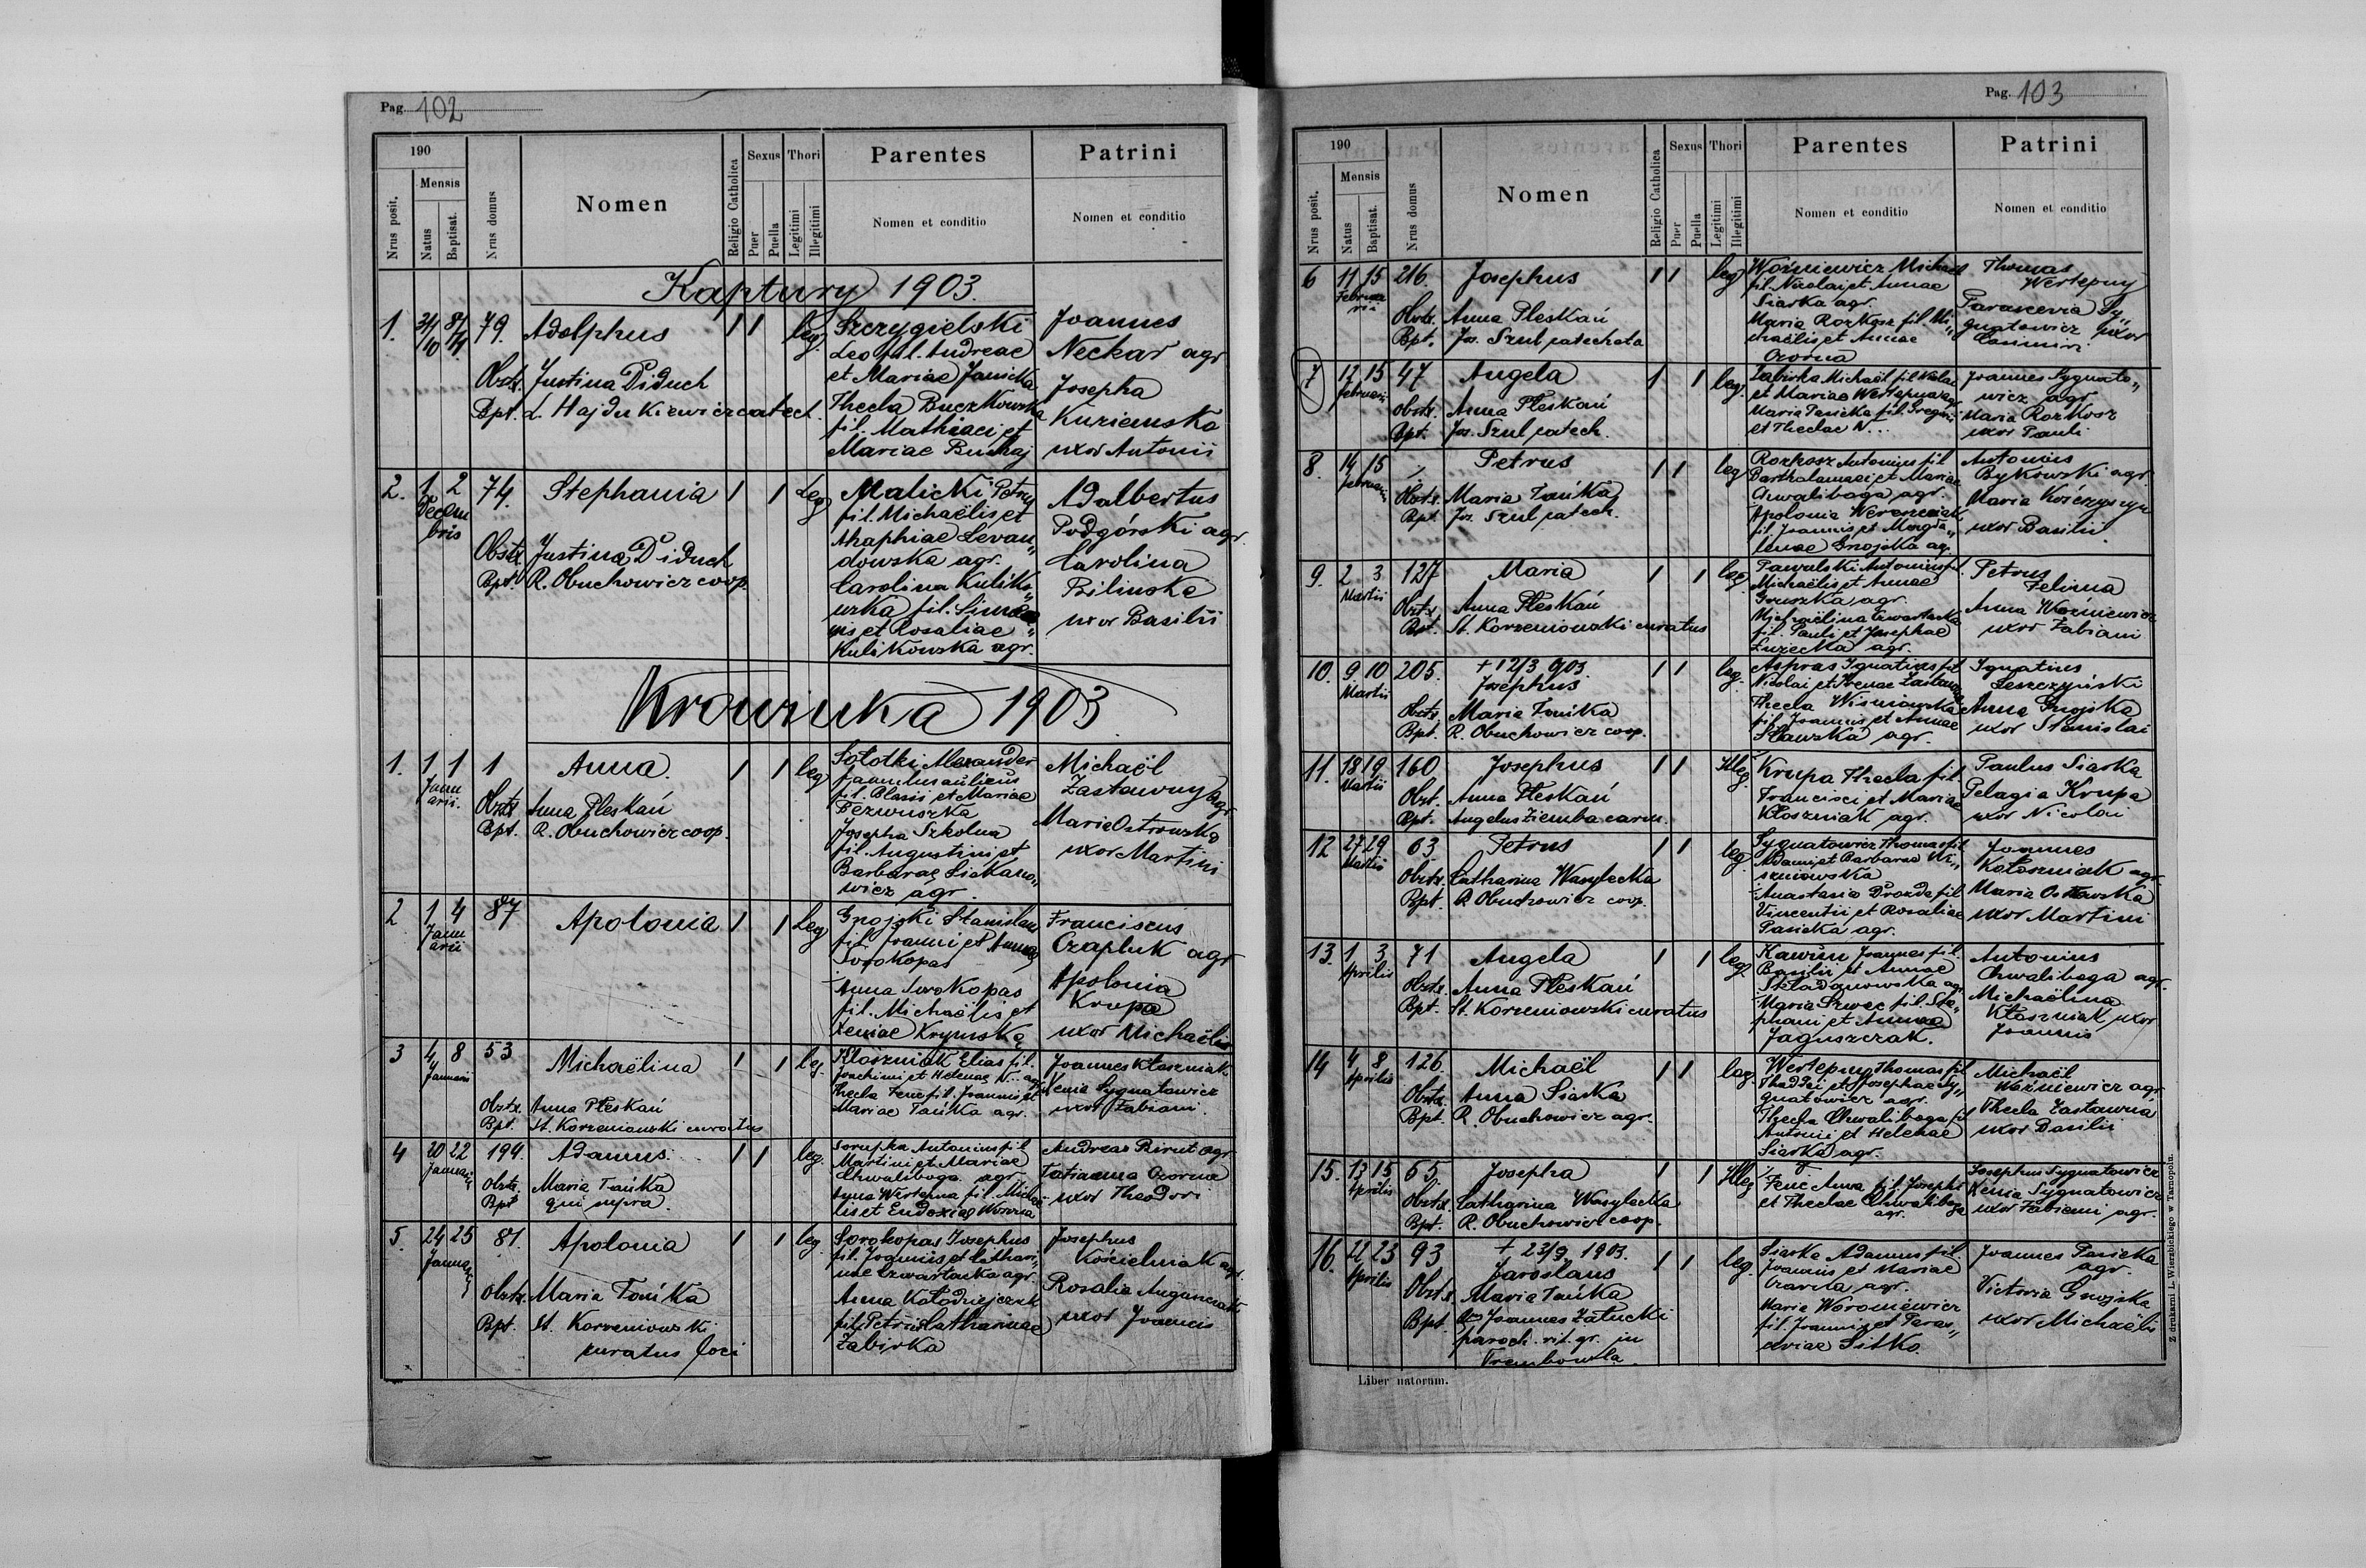 Pag. 102
190
Mensis
Nrus posit.
Natus
Baptisat.
Nrus domus
Nomen
Religio Catholica
Sexus
Puer
Puella
Thori
Legitimi
Illegitimi
Parentes
Nomen et conditio
Patrini
Nomen et conditio
Kaptury 1903.
1. 79. Adolphus 1 1 leg.
Obstx. Justina Diduch
Bpt. L. Hajdukiewicz catech.
Szczygielski
Leo fil. Andreae
et Mariae Janicka
Thecla Buczkowska
fil. Mathiaei et
Mariae Buchaj
Joannes
Neckar agr
Josepha
Kuziemska
uxor Antonii
2. 1 2 74. Stephania 1 1 Leg
Decem
bris
Obstx Justina Diduch
Bpt. R. Obuchowicz coop.
Malicki Petrus
fil. Michaëlis et
Ahaphiae Levan„
dowska agr.
Carolina Kulik„
wska fil. Simeo
nis et Rosaliae
Kulikowska agr.
Adalbertus
Podgórski agr.
Carolina
Bilinska
uxor Basilii
Krowinka 1903
1. 1 1 1 Anna. 1 1 leg
Janu
arii.
Obstx Anna Pleskań
Bpt. R. Obuchowicz coop.
Sołotki Alexander
famulus aulicus
fil. Blasii et Mariae
Perwuszka
Josepha Szkolna
fil. Augustini et
Barbarae Siekano„
wicz agr.
Michaël
Zastawny agr
Maria Ostrowska
uxor Martini
2 1 4 87 Apolonia 1 1 Leg
Janu
arii
Gnojski Stanislaus
fil. Joanni et Annae
Sorokopas
Anna Sorokopas
fil. Michaëlis et
Xeniae Krymska
Franciscus
Czapluk agr
Apolonia
Krupa
uxor Michaëlis
3 4 8 53 Michaëlina 1 1 leg.
Januarii
Obstx. Anna Pleskań
Bpt. St. Korzeniowski curatus
Kłoszniak Elias fil.
Joachimi et Helenae N... agr
Thecla Fenc fil. Joannis et
Mariae Tańka agr.
Joannes Kłoszniak
Xenia Sygnatowicz
uxor Fabiani.
4 20 22 194. Adamus. 1 1 leg.
Januarii
Obstx. Maria Tańka
Bpt qui supra.
Antonius fil
Martini et Mariae
Chwaliboga agr
Anna Wertepna fil. Michaë
lis et Eudoxiae
Andreas Birut agr
Tatianna Czorna
uxor Theodori
5. 24 25 81. Apolonia 1 1 leg
Januarii
Obstx. Maria Tańka
Bpt. St. Korzeniowski
curatus loci
Sorokopas Josephus
fil. Joannis et Cathari„
nae Czwartacka agr.
Anna Kołodziejczuk
fil. Petri et Catharinae
Zabirka
Josephus
Kościelniak agr.
Rosalia
uxor Joannis
Pag. 103
190
Mensis
Nrus posit.
Natus
Baptisat.
Nrus domus
Nomen
Religio Catholica
Sexus
Puer
Puella
Thori
Legitimi
Illegitimi
Parentes
Nomen et conditio
Patrini
Nomen et conditio
6 11 15 216. Josephus 1 1 leg
Februa
rii
Obstx. Anna Pleskań
Bpt. Jos. Szul catecheta
Woźniewicz Michaël
fil. Nicolai et Annae
Siarka agr.
Maria Rozkosz fil. Mi„
chaëlis et Annae
Czorna
Thomas
Wertepny
Parascevia Sy„
gnatowicz uxor
Casimiri
7 12 15 47 Angela 1 1 leg.
Februarii
Obstx. Anna Pleskań
Bpt. Jos. Szul catech.
Zabirka Michaël fil. Nicolai
et Mariae Wertepna agr
Maria Pasicka fil. Gregorii
et Theclae N...
Joannes Sygnato„
wicz agr
Maria Rozkosz
uxor Pauli
8. 14 15 Petrus 1 1 leg
Februarii
Obstx. Maria Tańka
Bpt. Jos. Szul catech.
Rozkosz Antonius fil
Bartholamaei et Mariae
Chwaliboga agr.
Apolonia
fil. Joannis et Magda„
lenae Gnojska agr.
Antonius
Bykowski agr.
Maria
uxor Basilii.
9. 2 3 127 Maria 1 1 leg.
Martii
Obstx. Anna Pleskań
Bpt. St. Korzeniowski curatus
Pawulski Antonius fil.
Michaëlis et Annae
Gruszka agr.
Michaëlina Czwartacka
fil. Pauli et Josephae
Łuzecka agr.
Petrus
Zelina
Anna Woźniewicz
uxor Fabiani
10. 9 10 205. + 12/3 903. 1 1 leg.
Martii
Josephus
Obstx. Maria Tańka
Bpt. R. Obuchowicz coop.
Aspras Ignatius fil
Nicolai et Irenae Zastawna
Thecla Wiśniowska
fil. Joannis et Annae
Sławska agr.
Ignatius
Leszczyński
Anna Gnojska
uxor Stanislai
11. 18 19 160 Josephus 1 1 Illeg
Martii
Obst. Anna Pleskań
Bpt. Angelus Ziemba carm.
Krupa Thecla fil.
Francisci et Mariae
Kłoszniak agr.
Paulus Siarka
Pelagia Krupa
uxor Nicolai
12 27 29 63 Petrus 1 1 leg
Martii
Obstx. Catharina Wasylecka
Bpt. R. Obuchowicz coop.
Sygnatowicz Thomas fil.
Adami et Barbarae Wi„
szniowska
Anastasia Drozda fil
Vincentii et Rosaliae
Pasicka agr.
Joannes
Kłoszniak agr.
Maria Ostrowska
uxor Martini
13. 1 3 71 Angela 1 1 leg
Aprilis
Obstx. Anna Pleskań
Bpt. St. Korzeniowski curatus
Kawün Joannes fil.
Basilii et Annae
Składanowska agr
Maria Szwec fil. Ste„
phani et Annae
Jaguszczak.
Antonius
Chwaliboga agr.
Michaëlina
Kłoszniak uxor
Joannis
14 4 8 126. Michaël 1 1 leg.
Aprilis
Obstx. Anna Siarka
Bpt. R. Obuchowicz agr.
Wertepny Thomas fil
Thaddei et Josephae Sy„
gnatowicz agr.
Thecla Chwaliboga fil
Antonii et Helenae
Siarka agr.
Michaël
Woźniewicz agr
Thecla Zastawna
uxor Basilii
15. 13 15 65 Josepha 1 1 Illeg
Aprilis
Obstx. Catharina Wasylecka
Bpt. R. Obuchowicz coop.
Fenc Anna fil. Josephi
et Theclae Chwaliboga
agr.
Josephus Sygnatowicz
Xenia Sygnatowicz
uxor Fabiani agr.
16. 22 23 93 + 23/9 1903. 1 1 leg.
Aprilis
Jaroslaus
Obstx. Maria Tańka
Bpt. Joannes Załucki
paroch. rit. gr. in
Trembowla.
Siarka Adamus fil.
Joannis et Mariae
Czarna agr.
Maria Woroniewicz
fil. Joannis et Paras„
cviae Sitko.
Joannes Pasicka
agr.
Victoria Gnojska
uxor Michaëlis
Liber natorum.
Z drukarni L. Wierzbickiego w Tarnopolu.